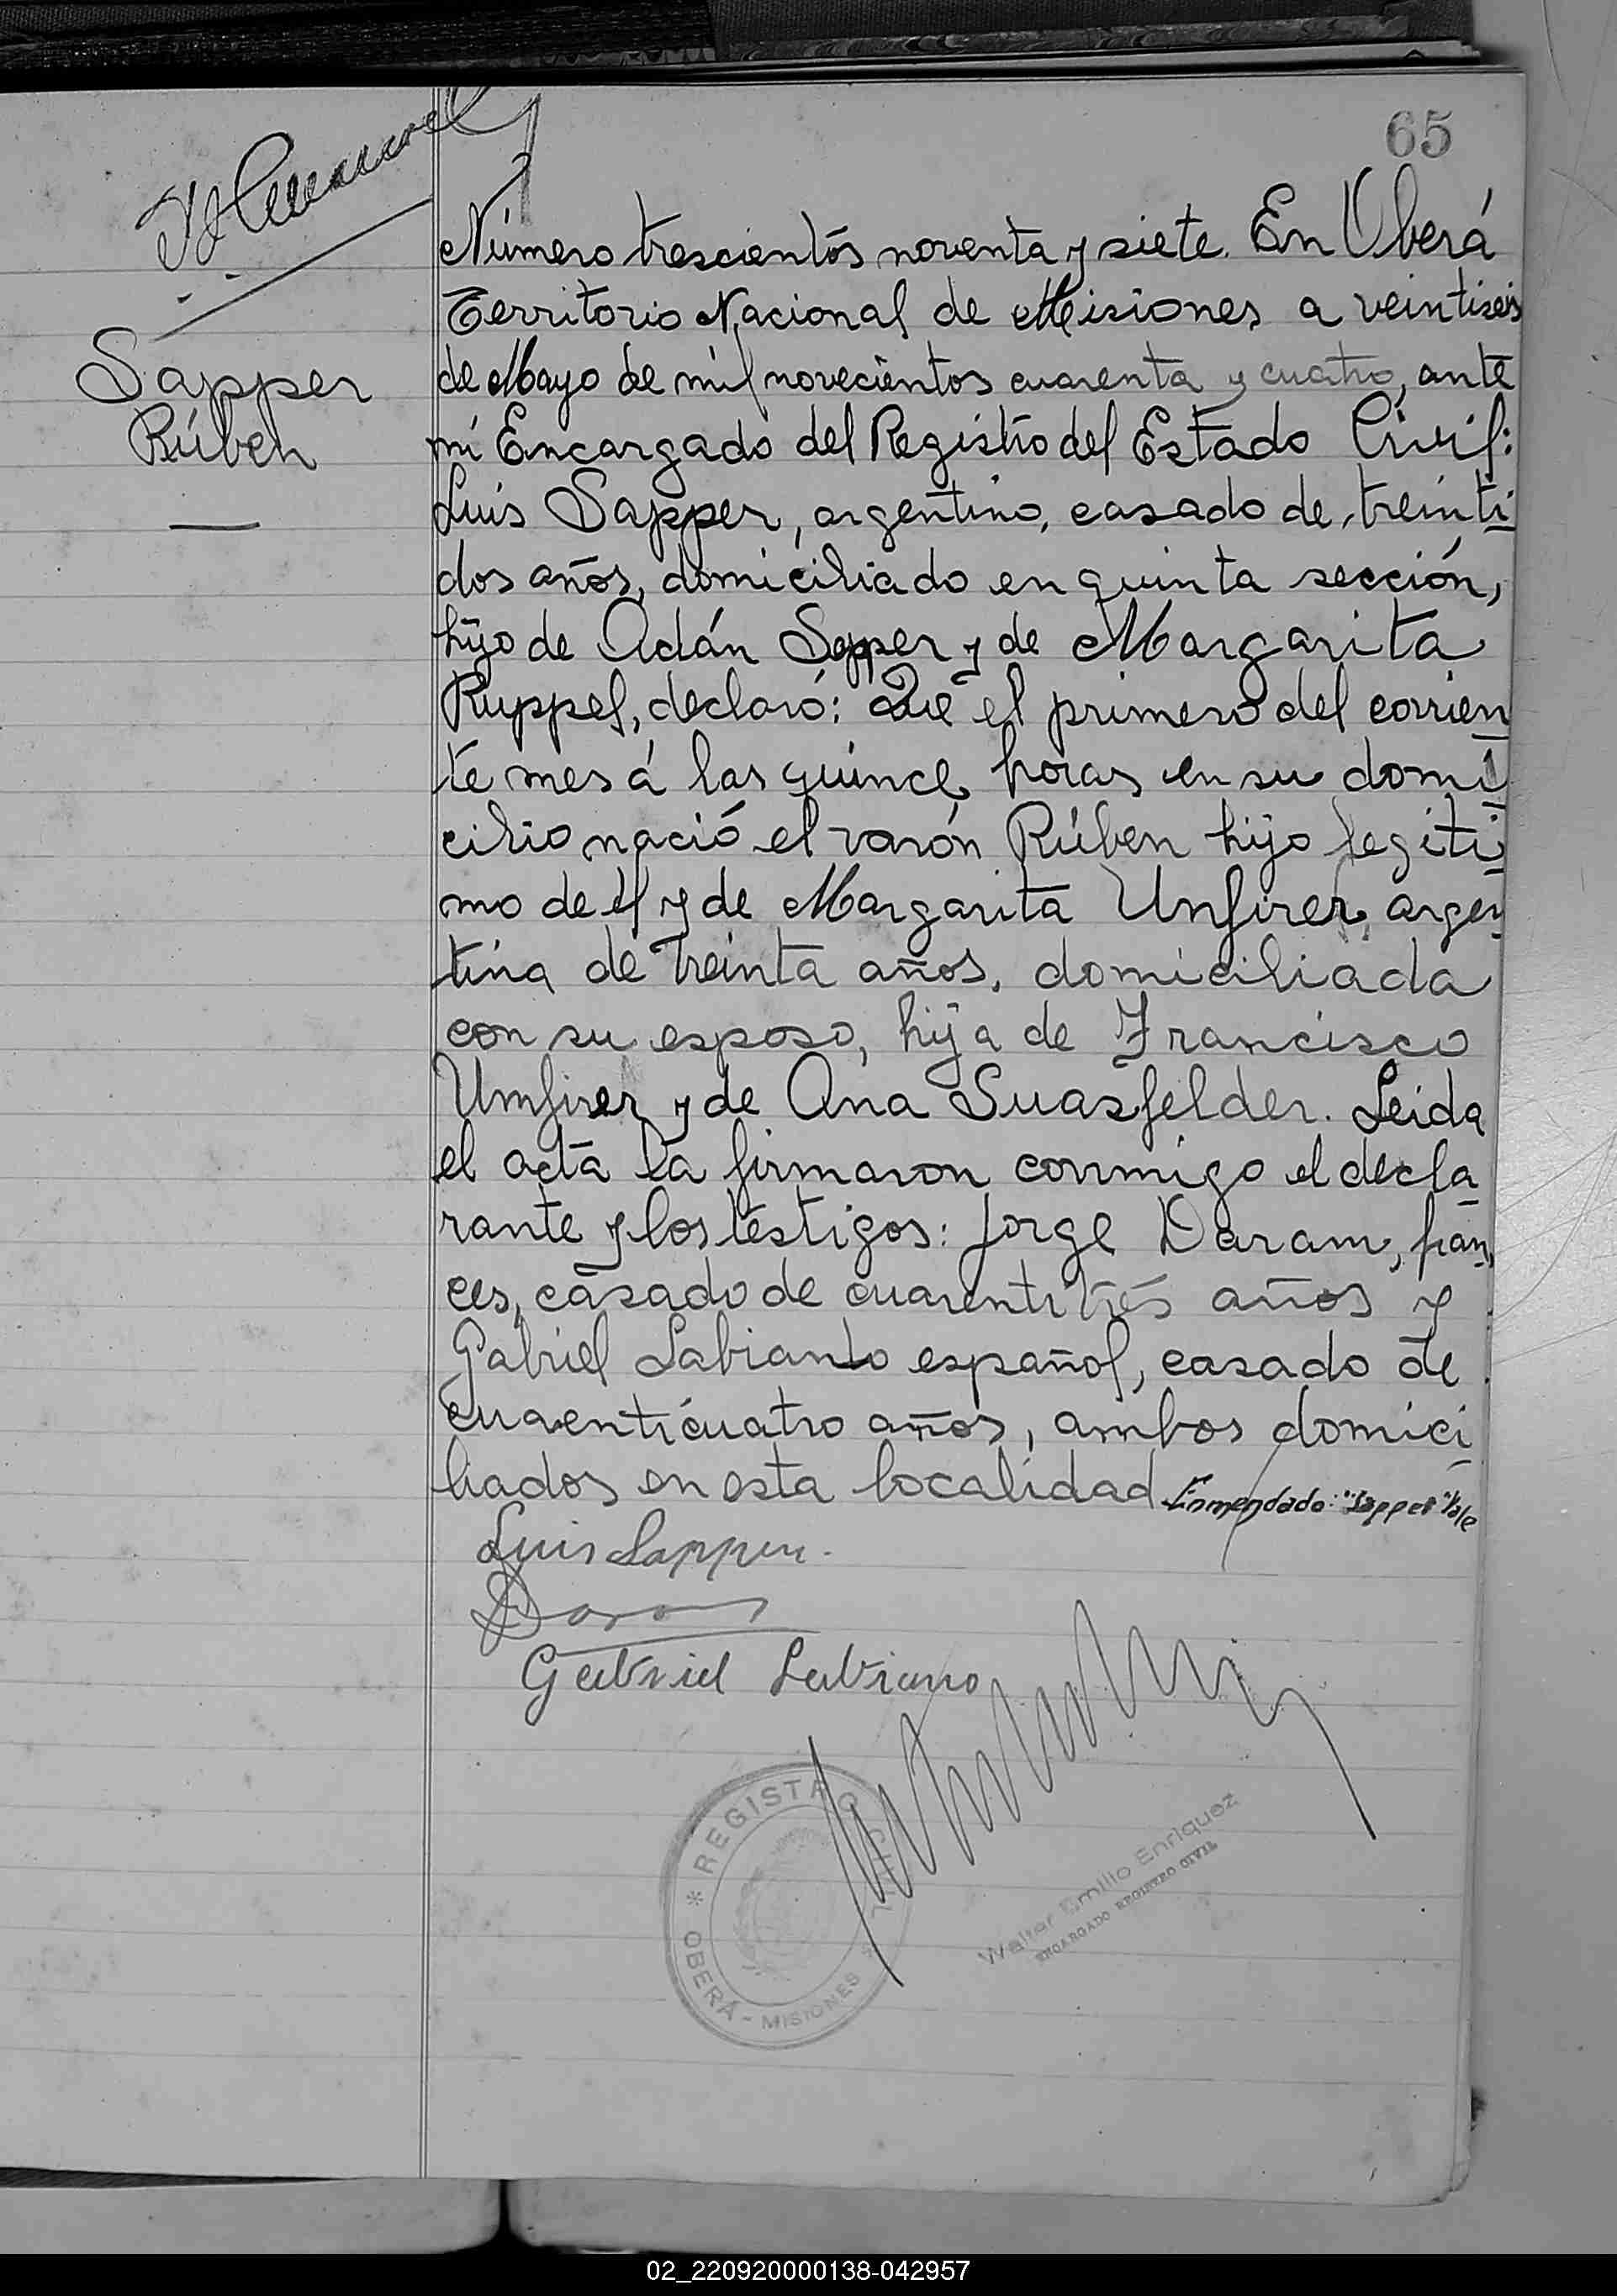 65
Sapper
Rúben
Número trescientos noventa y siete. En Oberá
Territorio Nacional de Misiones a veintiseis
de Mayo de mil novecientos cuarenta y cuatro, ante
mí Encargado del Registro del Estado Civil:
Luis Sapper, argentino, casado de treinti
dos años, domiciliado en quinta sección,
hijo de Adán Sapper y de Margarita
Ruppel, declaró: Que el primero del corrien
te mes á las quince horas en su domi
cilio nació el varón Rúben hijo legiti
mo de él y de Margarita Unfirer, argen
tina de treinta años, domiciliada
con su esposo, hija de Francisco
Umfirer y de Ana Suasfelder. Leida
el acta la firmaron conmigo el decla
rante y los testigos: Jorge Daram, fran
ces, casado de cuarentitrés años y
Gabriel Labianto español, casado de
cuarenticuatro años, ambos domici
liados en esta localidad Enmendado: "Sapper" Vale
Luis Sapper.
Gabriel Labiano
REGISTRO CIVIL
OBERÁ - MISIONES
Walter Emilio Enriquez
ENCARGADO REGISTRO CIVIL
02_220920000138-042957